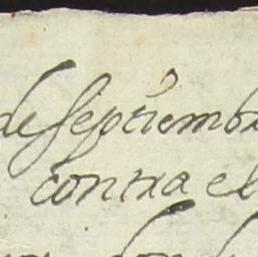 de septiembr
contra el